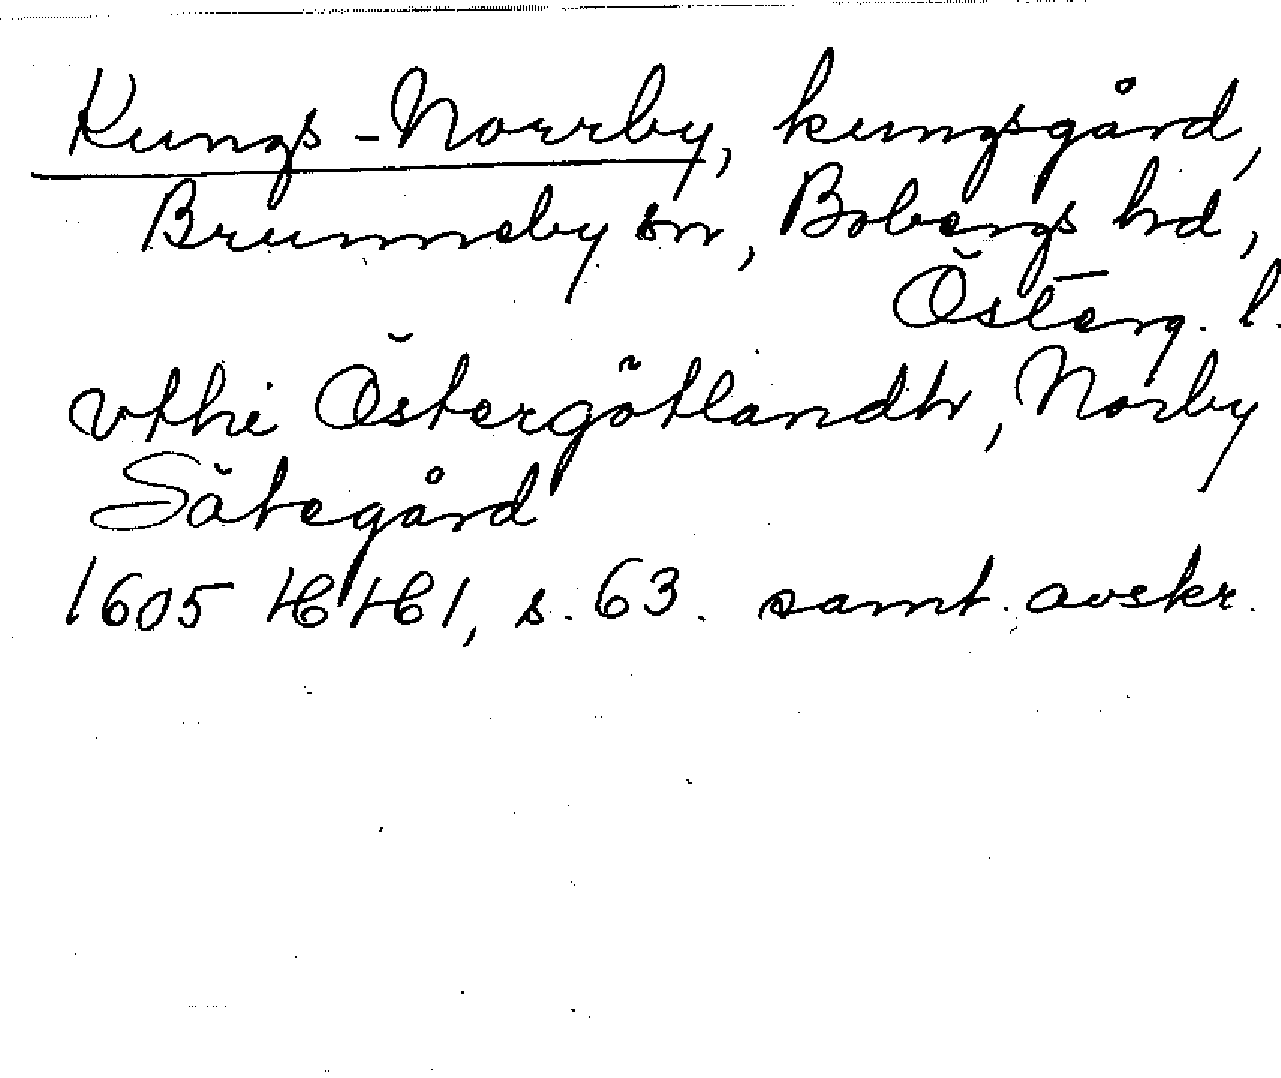 Kungs-Norrby, kungsgård,
Brunneby sn, Bobergs hd,
Österg. l.
vthi Östergötlandh, Norby
Sätegård
1605 HH1, s. 63. samt. avskr.